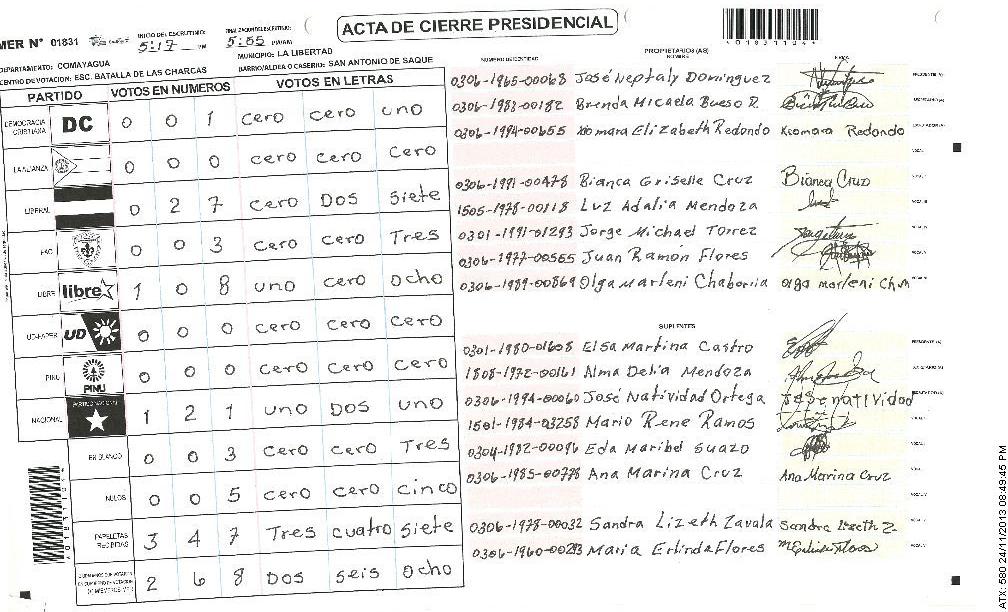 ACTA DE CIERRE PRESIDENCIAL
MER N° 01831
INICIO DEL ESCRUTINIO: 5:17 PM
5:55 PM
4018311044
DEPARTAMENTO: COMAYAGUA
MUNICIPIO: LA LIBERTAD
CENTRO DE VOTACION: ESC. BATALLA DE LAS CHARCAS
BARRIO/ALDEA O CASERIO: SAN ANTONIO DE SAQUE
PARTIDO VOTOS EN NUMEROS VOTOS EN LETRAS
DEMOCRACIA CRISTIANA DC 0 0 1 cero cero uno
LA ALIANZA 0 0 0 cero cero cero
LIBERAL 0 2 7 cero Dos siete
PAC 0 0 3 cero cero Tres
LIBRE libre 1 0 8 uno cero ocho
UD-FAPER UD 0 0 0 cero cero cero
PINU PINU 0 0 0 cero cero cero
NACIONAL PARTIDO NACIONAL 1 2 1 uno Dos uno
EN BLANCO 0 0 3 cero cero Tres
NULOS 0 0 5 cero cero cinco
PAPELETAS RECIBIDAS 3 4 7 Tres cuatro siete
2 6 8 Dos seis ocho
PROPIETARIOS (AS)
NUMERO DE IDENTIDAD NOMBRE FIRMA
0306-1965-00068 José Neptaly Dominguez PRESIDENTE (A)
0306-1983-00182 Brenda Micaela Bueso R. SECRETARIO (A)
0306-1994-00655 Xiomara Elizabeth Redondo Xiomara Redondo
0306-1991-00478 Bianca Griselle Cruz Bianca Cruz
1505-1978-00118 Luz Adalia Mendoza
0301-1991-01293 Jorge Michael Torrez
0306-1977-00565 Juan Ramón Flores
0306-1989-00869 Olga Marleni Chaborria Olga Marleni Chm
SUPLENTES
0301-1980-01608 Elsa Martina Castro PRESIDENTE (A)
1808-1972-00161 Alma Delia Mendoza SECRETARIO (A)
0306-1994-00060 José Natividad Ortega José natividad
1501-1984-03258 Mario Rene Ramos
0304-1982-00096 Eda Maribel Suazo
0306-1985-00778 Ana Marina Cruz Ana Marina Cruz
0306-1978-00032 Sandra Lizeth Zavala Sandra Lizeth Z
0306-1960-00293 Maria Erlinda Flores
4018311044
ATX: 580 24/11/2013 08:49:45 PM